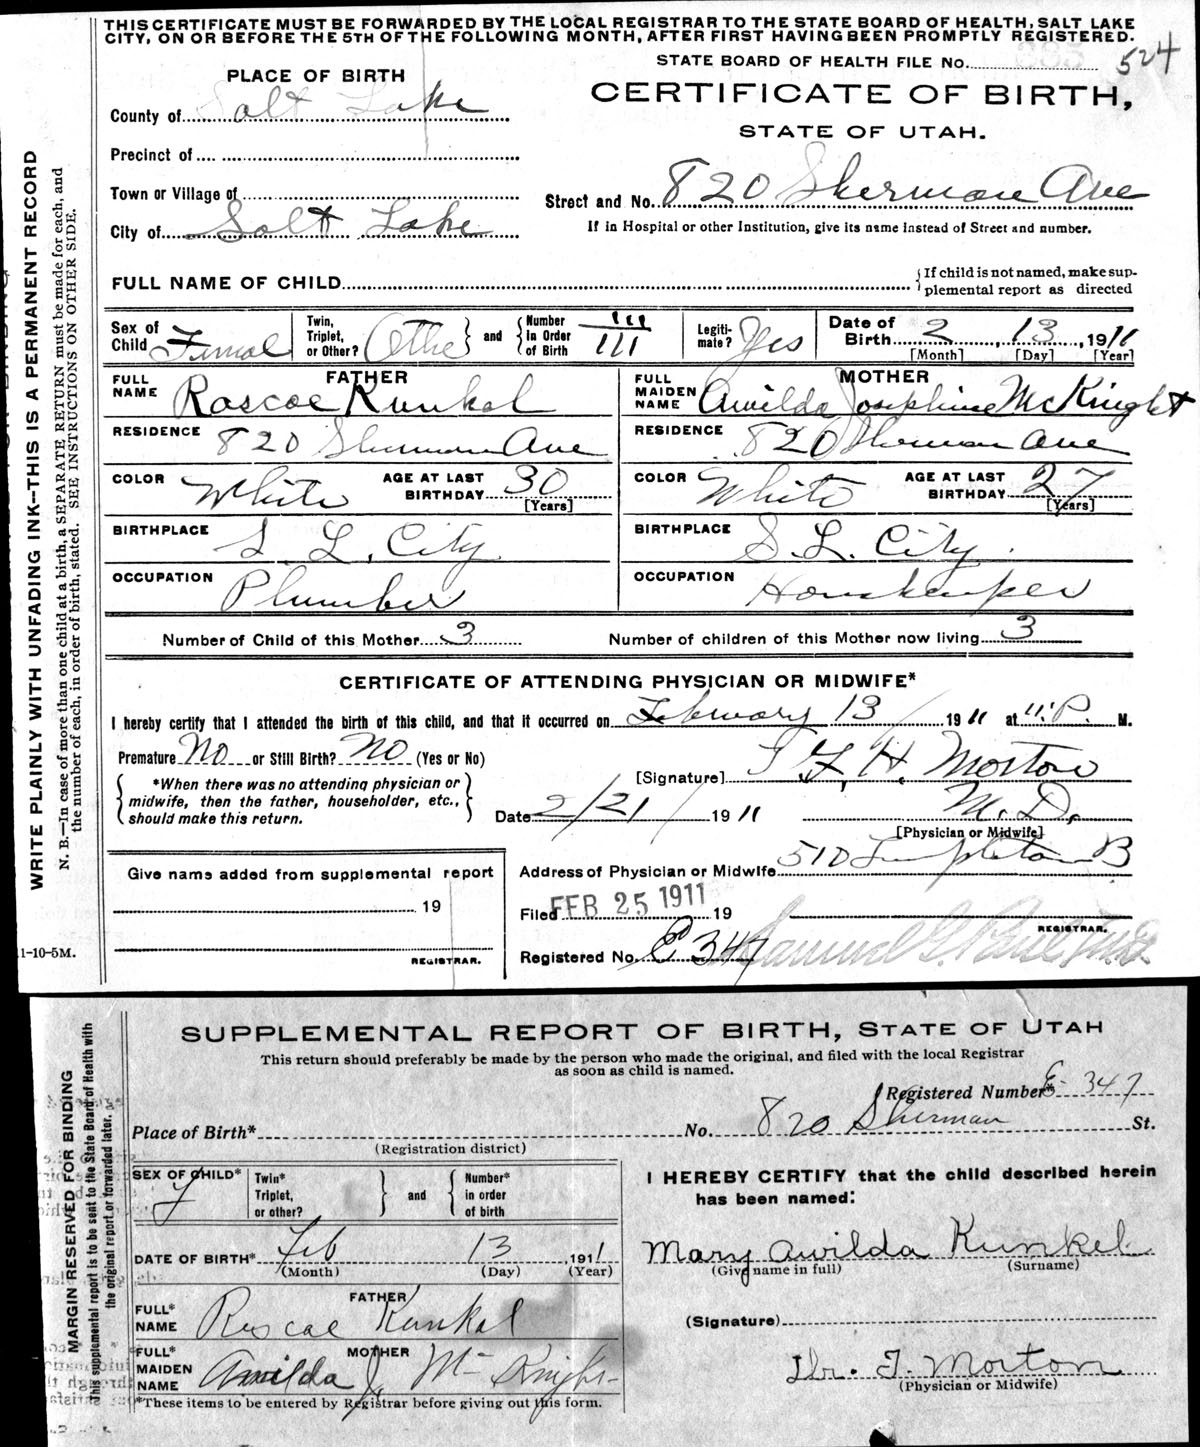 THIS CERTIFICATE MUST BE FORWARDED BY THE LOCAL REGISTRAR TO THE STATE BOARD OF HEALTH, SALT LAKE
CITY, ON OR BEFORE THE 5TH OF THE FOLLOWING MONTH, AFTER FIRST HAVING BEEN PROMPTLY REGISTERED.
STATE BOARD OF HEALTH FILE No. 524
PLACE OF BIRTH
CERTIFICATE OF BIRTH,
STATE OF UTAH.
County of Salt Lake
Precinct of
Town or Village of
Street and No. 820 Sherman Ave
City of Salt Lake
If in Hospital or other Institution, give its name instead of Street and number.
FULL NAME OF CHILD
If child is not named, make sup-
plemental report as directed
Sex of Child Female
Twin, Triplet, or Other? Othe
and
Number In Order of Birth III III
Legiti-mate? Yes
Date of Birth 2 13 1911
[Month] [Day] [Year]
FATHER
FULL NAME Roscoe Kunkel
MOTHER
FULL MAIDEN NAME Awilda Josephine McKnight
RESIDENCE 820 Sherman Ave
RESIDENCE 820 Sherman Ave
COLOR White AGE AT LAST BIRTHDAY 30 [Years]
COLOR White AGE AT LAST BIRTHDAY 27 [Years]
BIRTHPLACE S. L. City
BIRTHPLACE S. L. City.
OCCUPATION Plumber
OCCUPATION Housekeeper
Number of Child of this Mother 3 Number of children of this Mother now living 3
CERTIFICATE OF ATTENDING PHYSICIAN OR MIDWIFE*
I hereby certify that I attended the birth of this child, and that it occurred on February 13 1911 at 11 P. M.
Premature No or Still Birth? No (Yes or No)
[Signature] H. Morton
*When there was no attending physician or
midwife, then the father, householder, etc.,
should make this return.
Date 2/21/ 1911 M. D.
[Physician or Midwife]
Give name added from supplemental report
Address of Physician or Midwife 510 Templeton B
19
Filed FEB 25 1911 19
REGISTRAR.
Registered No. E 347
REGISTRAR.
11-10-5M.
WRITE PLAINLY WITH UNFADING INK--THIS IS A PERMANENT RECORD
N. B.—In case of more than one child at a birth, a SEPARATE RETURN must be made for each, and
the number of each, in order of birth, stated. SEE INSTRUCTIONS ON OTHER SIDE.
SUPPLEMENTAL REPORT OF BIRTH, STATE OF UTAH
This return should preferably be made by the person who made the original, and filed with the local Registrar
as soon as child is named.
Registered Number* E 347
Place of Birth* No. 820 Sherman St.
(Registration district)
SEX OF CHILD* F
Twin* Triplet, or other?
and
Number* in order of birth
I HEREBY CERTIFY that the child described herein
has been named:
DATE OF BIRTH* Feb 13 1911
(Month) (Day) (Year)
Mary Awilda Kunkel
(Give name in full) (Surname)
FATHER
FULL* NAME Roscoe Kunkel
(Signature)
MOTHER
FULL* MAIDEN NAME Awilda J. McKnight
Dr. T. Morton
(Physician or Midwife)
*These items to be entered by Registrar before giving out this form.
MARGIN RESERVED FOR BINDING
This supplemental report is to be sent to the State Board of Health with
the original report or forwarded later.